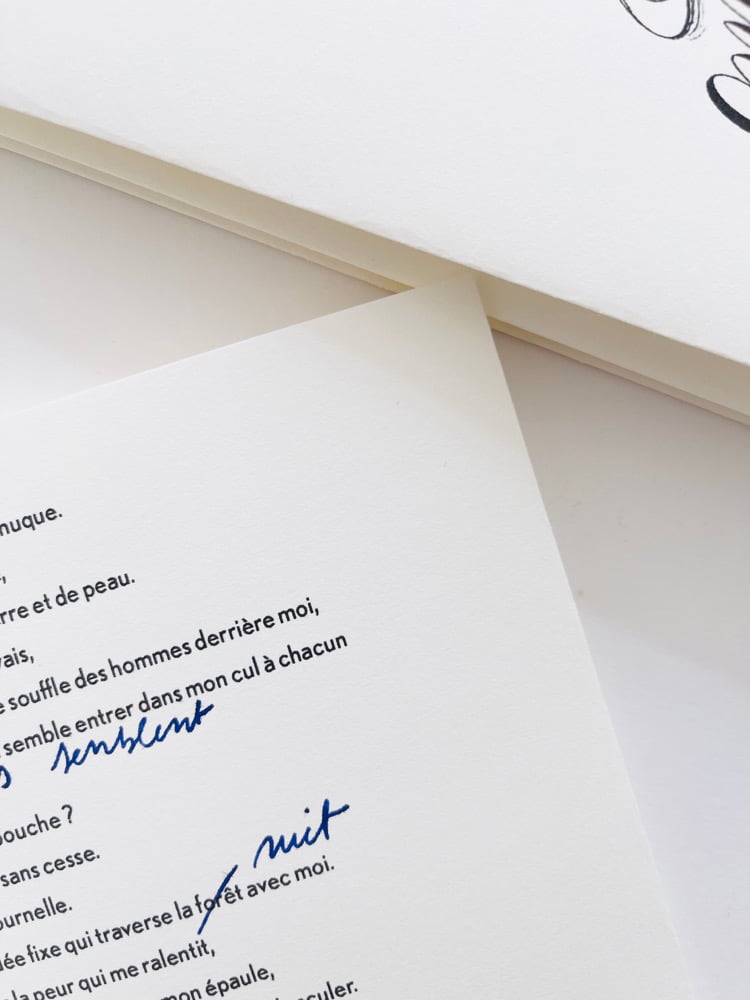 nuque.
rre et de peau.
ais,
souffle des hommes derrière moi,
semble entrer dans mon cul à chacun
semblent
bouche ?
sans cesse.
nuit
ée fixe qui traverse la forêt avec moi.
la peur qui me ralentit,
mon épaule,